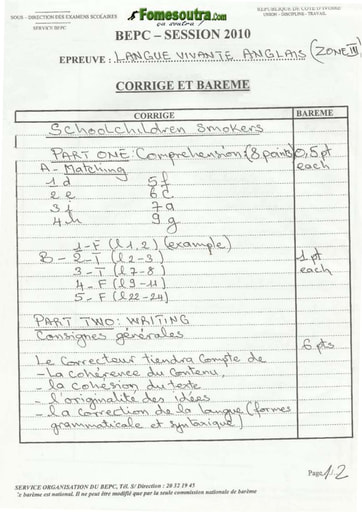 SOUS - DIRECTION DES EXAMENS SCOLAIRES
SERVICE BEPC
Fomesoutra.com
ça soutra !
REPUBLIQUE DE COTE D'IVOIRE
UNION - DISCIPLINE - TRAVAIL
BEPC – SESSION 2010
EPREUVE : LANGUE VIVANTE ANGLAIS (ZONE III)
CORRIGE ET BAREME
CORRIGE BAREME
Schoolchildren smokers
PART ONE: Comprehension (8 points) 0,5 pt
A - Matching each
1 d 5 f
2 e 6 c
3 i 7 a
4 h 9 g
1 - F (l 1, 2) (example)
B - 2 - T (l 2 - 3) 1 pt
3 - T (l 7 - 8) each
4 - F (l 9 - 11)
5 - F (l 22 - 24)
PART TWO: WRITING
Consignes générales 6 pts
Le correcteur tiendra compte de
- La cohérence du contenu,
- la cohésion du texte
- l'originalité des idées
- la correction de la langue (formes
grammaticale et syntaxique)
Page 1/2
SERVICE ORGANISATION DU BEPC, Tél. S/ Direction : 20 32 19 45
'e barème est national. Il ne peut être modifié que par la seule commission nationale de barème